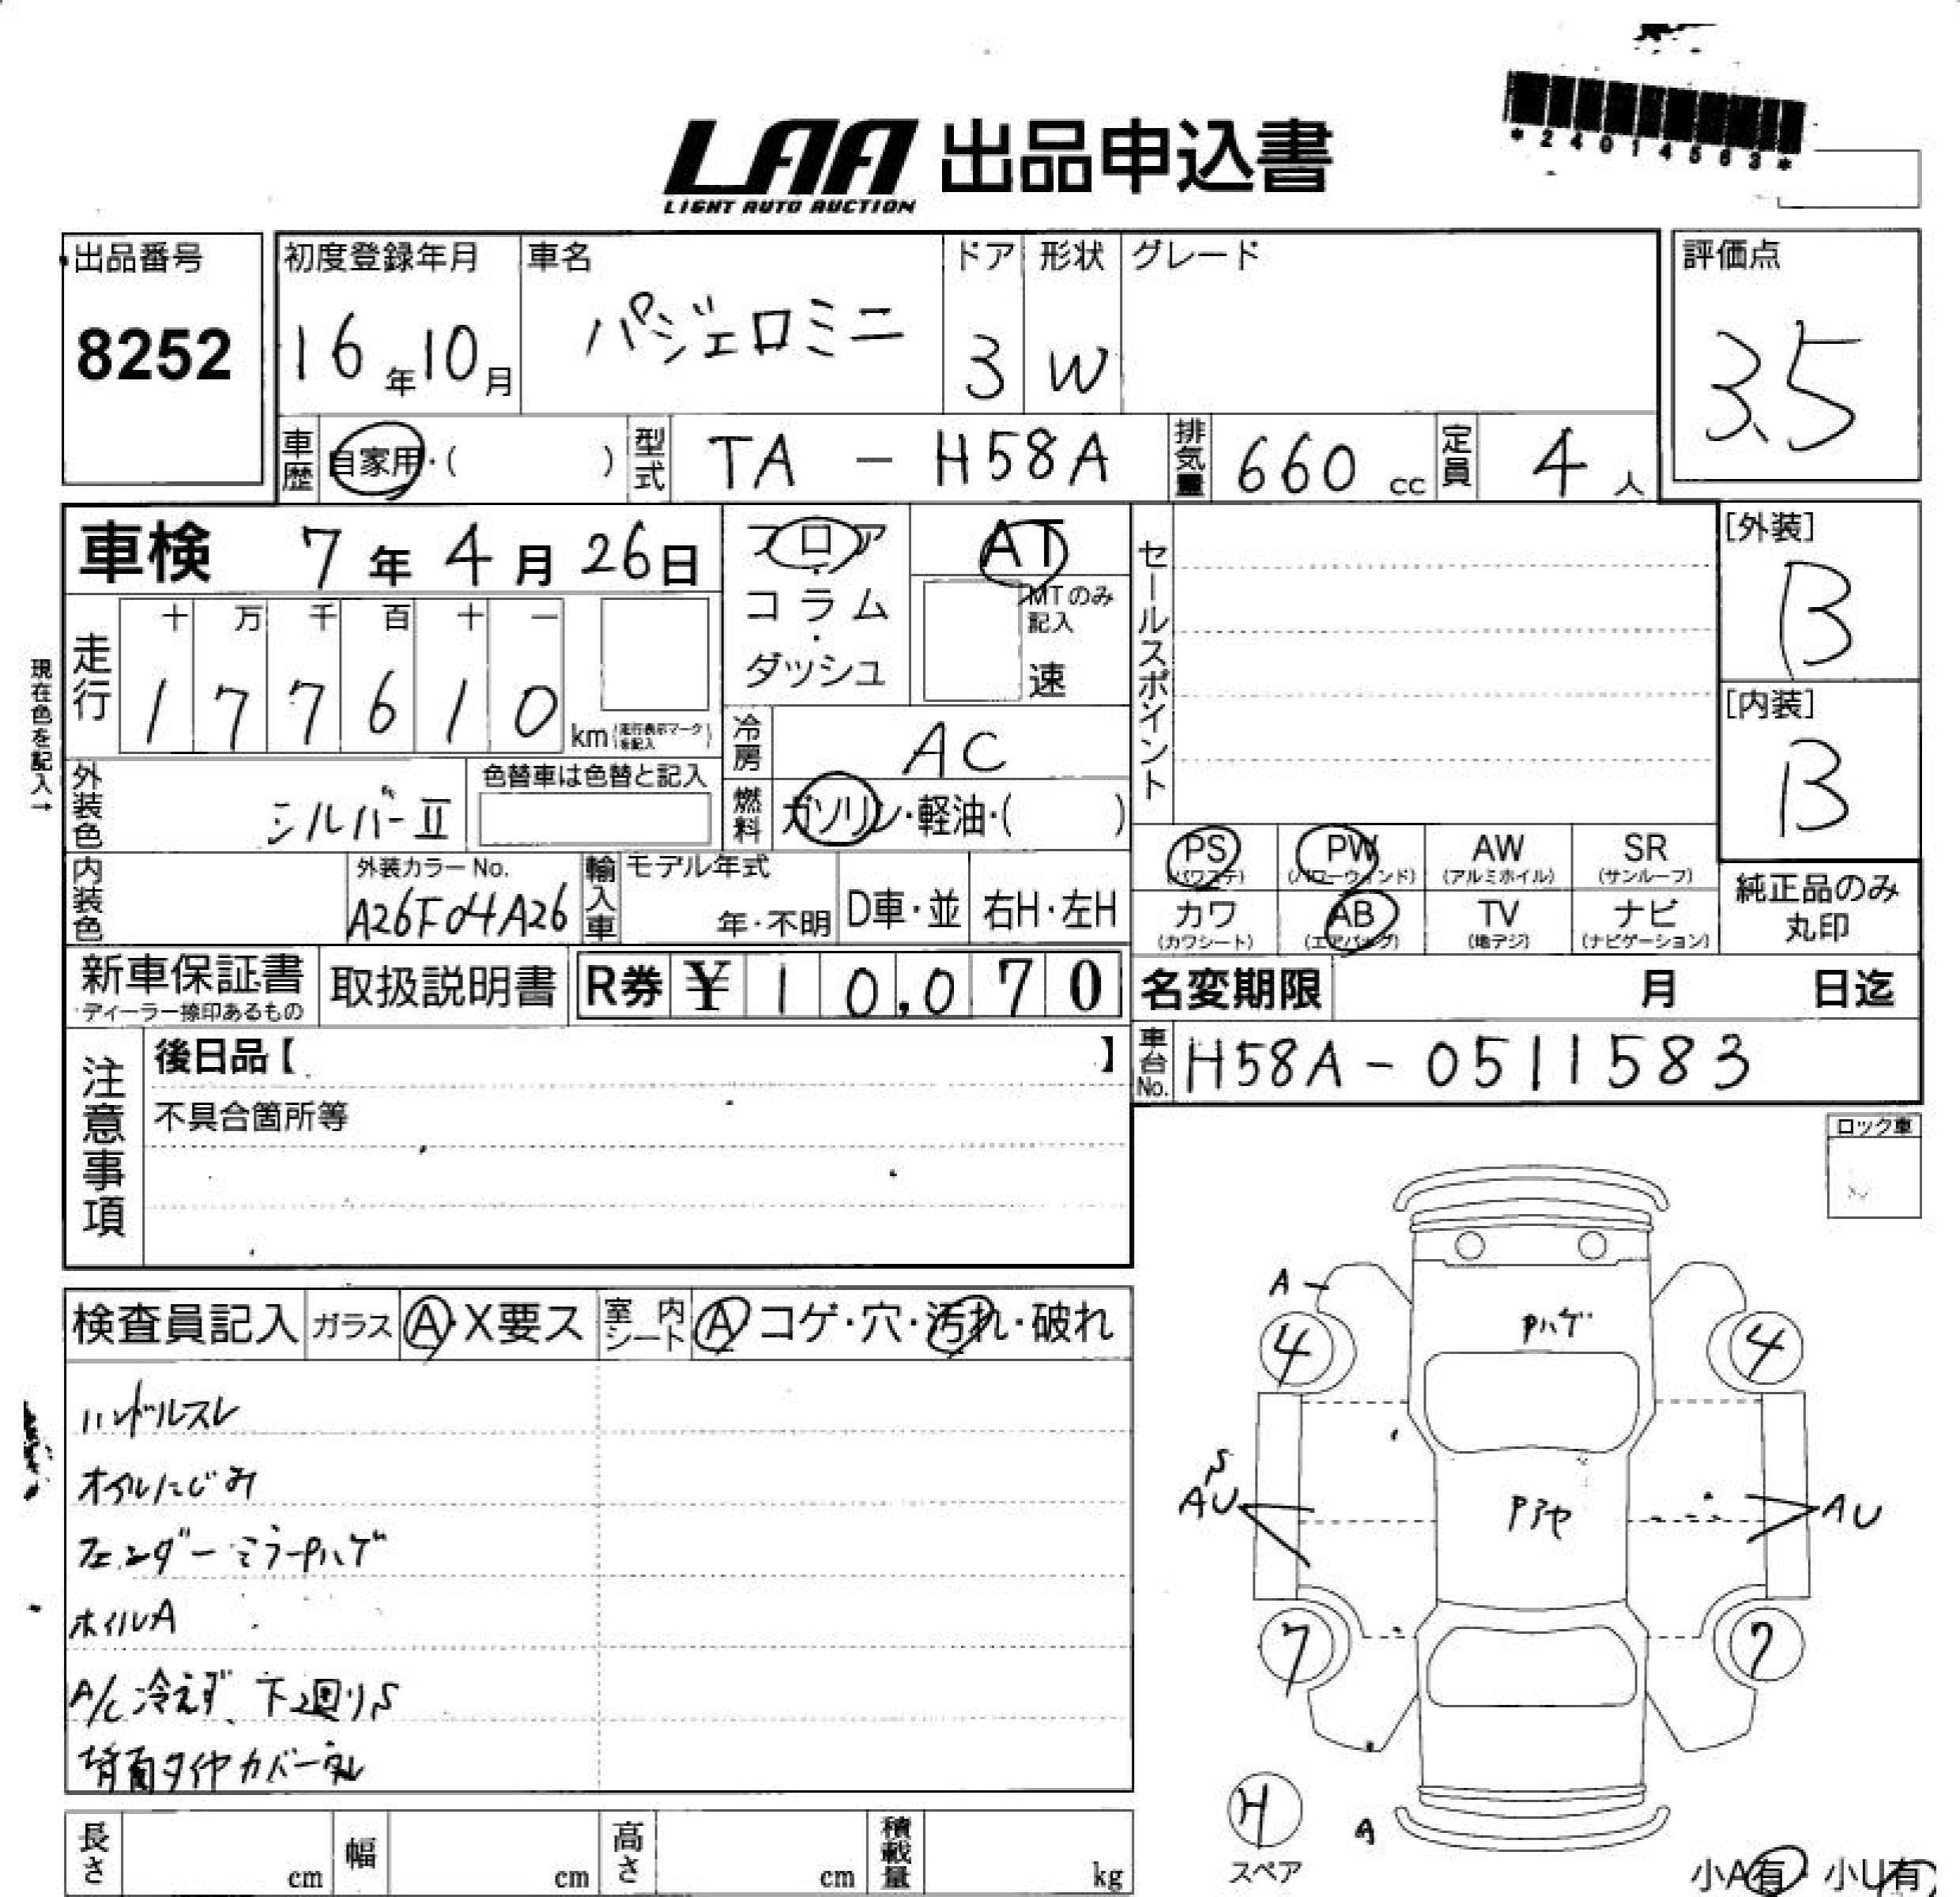 *24014563*
LAA 出品申込書
LIGHT AUTO AUCTION
出品番号 初度登録年月 車名 ドア 形状 グレード 評価点
8252 16年10月 パジェロミニ 3 W 3.5
車歴 自家用・( ) 型式 TA - H58A 排気量 660 cc 定員 4 人
車検 7年4月26日 フロア・コラム・ダッシュ AT MTのみ記入 速 セールスポイント [外装] B
現在色を記入→
走行 十 万 千 百 十 一
1 7 7 6 1 0 km (走行表示マークを記入)
冷房 AC [内装] B
外装色 シルバーII 色替車は色替と記入 燃料 ガソリン・軽油・( )
PS (パワステ) PW (パワーウィンド) AW (アルミホイル) SR (サンルーフ)
カワ (カワシート) AB (エアバッグ) TV (地デジ) ナビ (ナビゲーション) 純正品のみ丸印
内装色 外装カラーNo. A26F04A26 輸入車 モデル年式 年・不明 D車・並 右H・左H
新車保証書 ディーラー捺印あるもの 取扱説明書 R券 ¥10,070 名変期限 月 日迄
車台No. H58A-0511583
注意事項 後日品【 】
不具合箇所等
ロック車
検査員記入 ガラス A・X要ス 室内シート A コゲ・穴・汚れ・破れ
ハンドルスレ
オイルにじみ
フェンダーミラーPハゲ
ホイルA
A/C冷えず、下廻りS
背面タイヤカバー
A
Pハゲ
4 4
S
AU
AU
7 7
H
スペア
A
小A有・小U有
長さ cm 幅 cm 高さ cm 積載量 kg